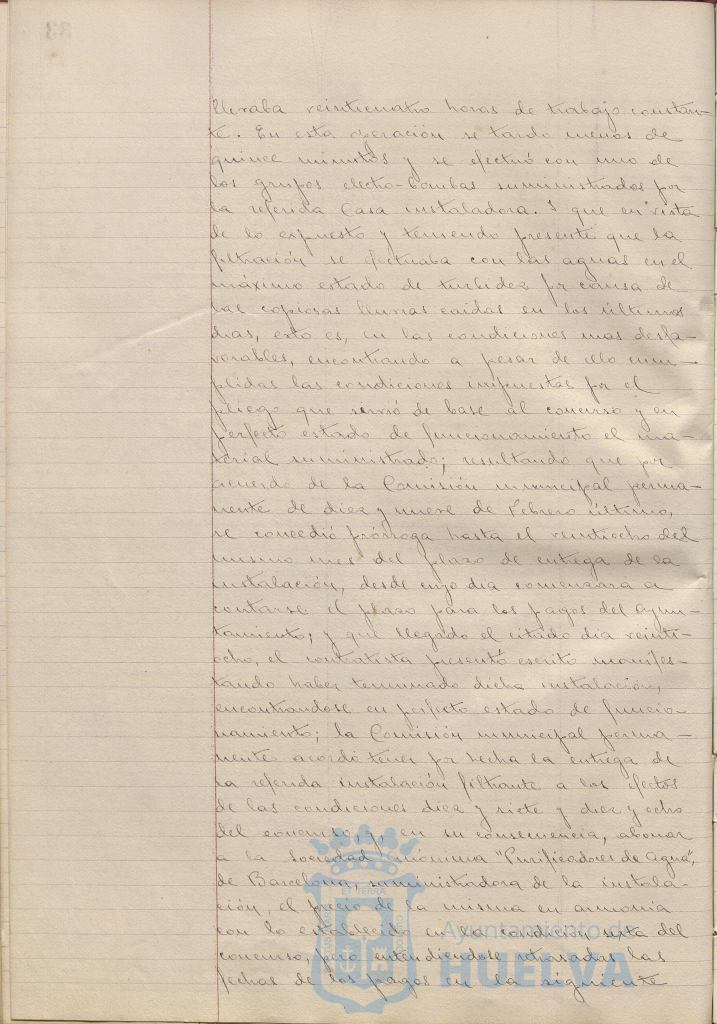 llevaba veinticuatro horas de trabajo constan-
te. En esta operación se tardó menos de
quince minutos y se efectuó con uno de
los grupos electro-bombas suministrados por
la referida Casa instaladora. Y que en vista
de lo expuesto y teniendo presente que la
filtración se efectuaba con las aguas en el
máximo estado de turbidez por causa de
las copiosas lluvias caidas en los últimos
dias, esto es, en las condiciones mas desfa-
vorables, encontrando a pesar de ello cum-
plidas las condiciones impuestas por el
pliego que sirvió de base al concurso y en
perfecto estado de funcionamiento el ma-
terial suministrado; resultando que por
acuerdo de la Comisión municipal perma-
nente de diez y nueve de Febrero último,
se concedió prórroga hasta el veintiocho del
mismo mes del plazo de entrega de la
instalación, desde cuyo dia comenzara a
contarse el plazo para los pagos del Ayun-
tamiento, y que llegado el citado dia veinti-
ocho, el contratista presentó escrito manifes-
tando haber terminado dicha instalación,
encontrandose en perfecto estado de funcio-
namiento; la Comisión municipal perma-
nente acordó tener por hecha la entrega de
la referida instalación filtrante a los efectos
de las condiciones diez y siete y diez y ocho
del concurso, y, en su consecuencia, abonar
a la Sociedad anónima "Purificadores de Agua",
de Barcelona, suministradora de la instala-
ción, el precio de la misma en armonia
con lo establecido en la condición sexta del
concurso, pero entendiendose retrasadas las
fechas de los pagos en la siguiente
Ayuntamiento de
HUELVA